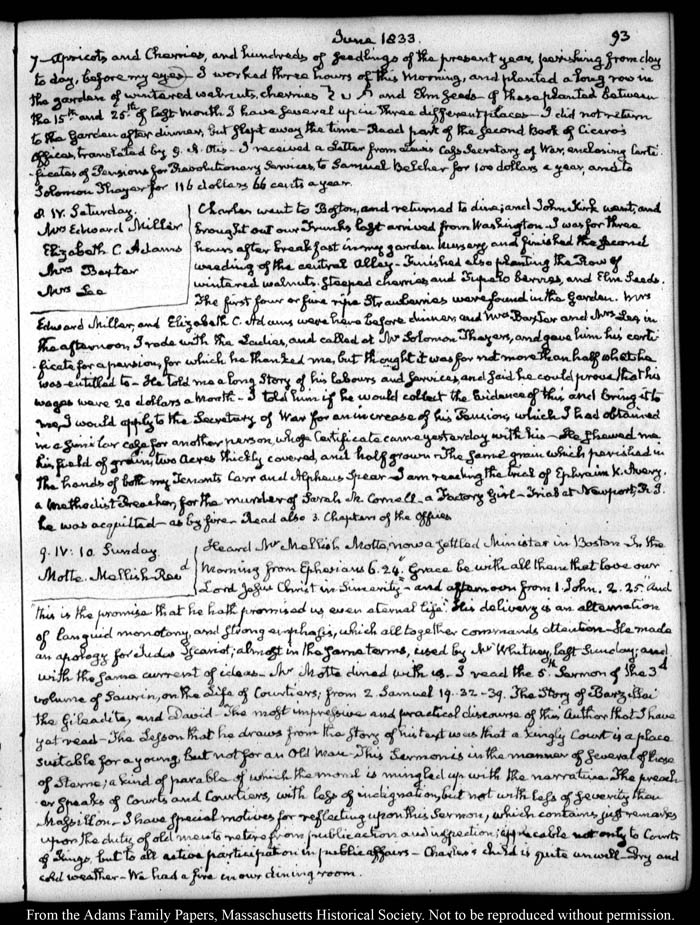 June 1833.
93
7 – Apricots and Cherries, and hundreds of seedlings of the present year, perishing from day
to day, before my eyes – I worked three hours of this Morning, and planted a long row in
the garden of wintered walnuts, cherries and Elm seeds – of these planted between
the 15th and 25th of last month I have several up in three different places – I did not return
to the Garden after dinner, but slept away the time – Read part of the second book of Cicero's
Offices, translated by Otis – I received a Letter from Lewis Cass Secretary of War, enclosing Certi-
ficates of Pensions for Revolutionary Services, to Samuel Belcher for 100 dollars a year, and to
Solomon Thayer for 116 dollars 66 cents a year.
8. IV. Saturday.
Mrs Edward Miller
Elizabeth C. Adams
Mrs Baxter
Mrs Lee
Charles went to Boston, and returned to dine; and John Kirk went, and
brought out our Trunks last arrived from Washington – I was for three
hours after breakfast in my garden Nursery and finished the second
weeding of the central Alley – Finished also planting the Row of
wintered walnuts. Steeped cherries and Tupelo berries, and Elm Seeds.
The first four or five ripe Strawberries were found in the Garden. Mrs
Edward Miller, and Elizabeth C. Adams were here before dinner, and Mrs Baxter and Mrs Lee, in
the afternoon. I rode with the Ladies, and called at Mr Solomon Thayer's, and gave him his certi-
ficate for a pension, for which he thanked me, but thought it was for not more than half what he
was entitled to – He told me a long Story of his labours and services, and said he could prove that his
wages were 20 dollars a Month – I told him if he would collect the Evidence of this and bring it to
me, I would apply to the Secretary of War for an increase of his Pension, which I had obtained
in a similar case for another person, whose Certificate came yesterday with his – He shewed me
his field of grain, two Acres thickly covered, and half grown – The same grain which perished in
the hands of both my Tenants Carr and Alpheus Spear – I am reading the trial of Ephraim K. Avery.
a Methodist Preacher, for the murder of Sarah M. Cornell – a Factory Girl – Trial at Newport, R. I.
he was acquitted – as before – Read also 3. Chapters of the Offices
9. IV: 10. Sunday
Motte. Mellish Revd
Heard Mr Mellish Motte, now a settled Minister in Boston – In the
Morning from Ephesians 6. 24. Grace be with all them that love our
Lord Jesus Christ in Sincerity" – and afternoon from 1. John. 2. 25. "And
"this is the promise that he hath promised us even eternal life." His delivery is an alternation
of languid monotony, and strong emphasis, which all together commands attention – He made
an apology for Judas Iscariot; almost in the same terms, used by Mr Whitney, last Sunday; and
with the same current of ideas – Mr Motte dined with us. I read the 5th Sermon of the 3d
volume of Saurin, on the Life of Courtiers; from 2. Samuel 19. 32 – 39. The Story of Barzillai
the Gileadite, and David – The most impressive and practical discourse of this Author that I have
yet read – The Lesson that he draws from the Story of his text was that a Kingly Court is a place
suitable for a young, but not for an Old Man – This Sermon is in the manner of several of those
of Sterne; a kind of parable of which the moral is mingled up with the narrative – The preach-
er speaks of Courts and Courtiers, with less of indignation, but not with less of severity than
Massillon – I have special motives for reflecting upon this Sermon, which contains just remarks
upon the duty of old men to retire from public action and inspection; applicable not only to Courts
of Kings, but to all active participation in public affairs – Charles's child is quite unwell – Dry and
cold weather – We had a fire in our dining room.
From the Adams Family Papers, Massachusetts Historical Society. Not to be reproduced without permission.